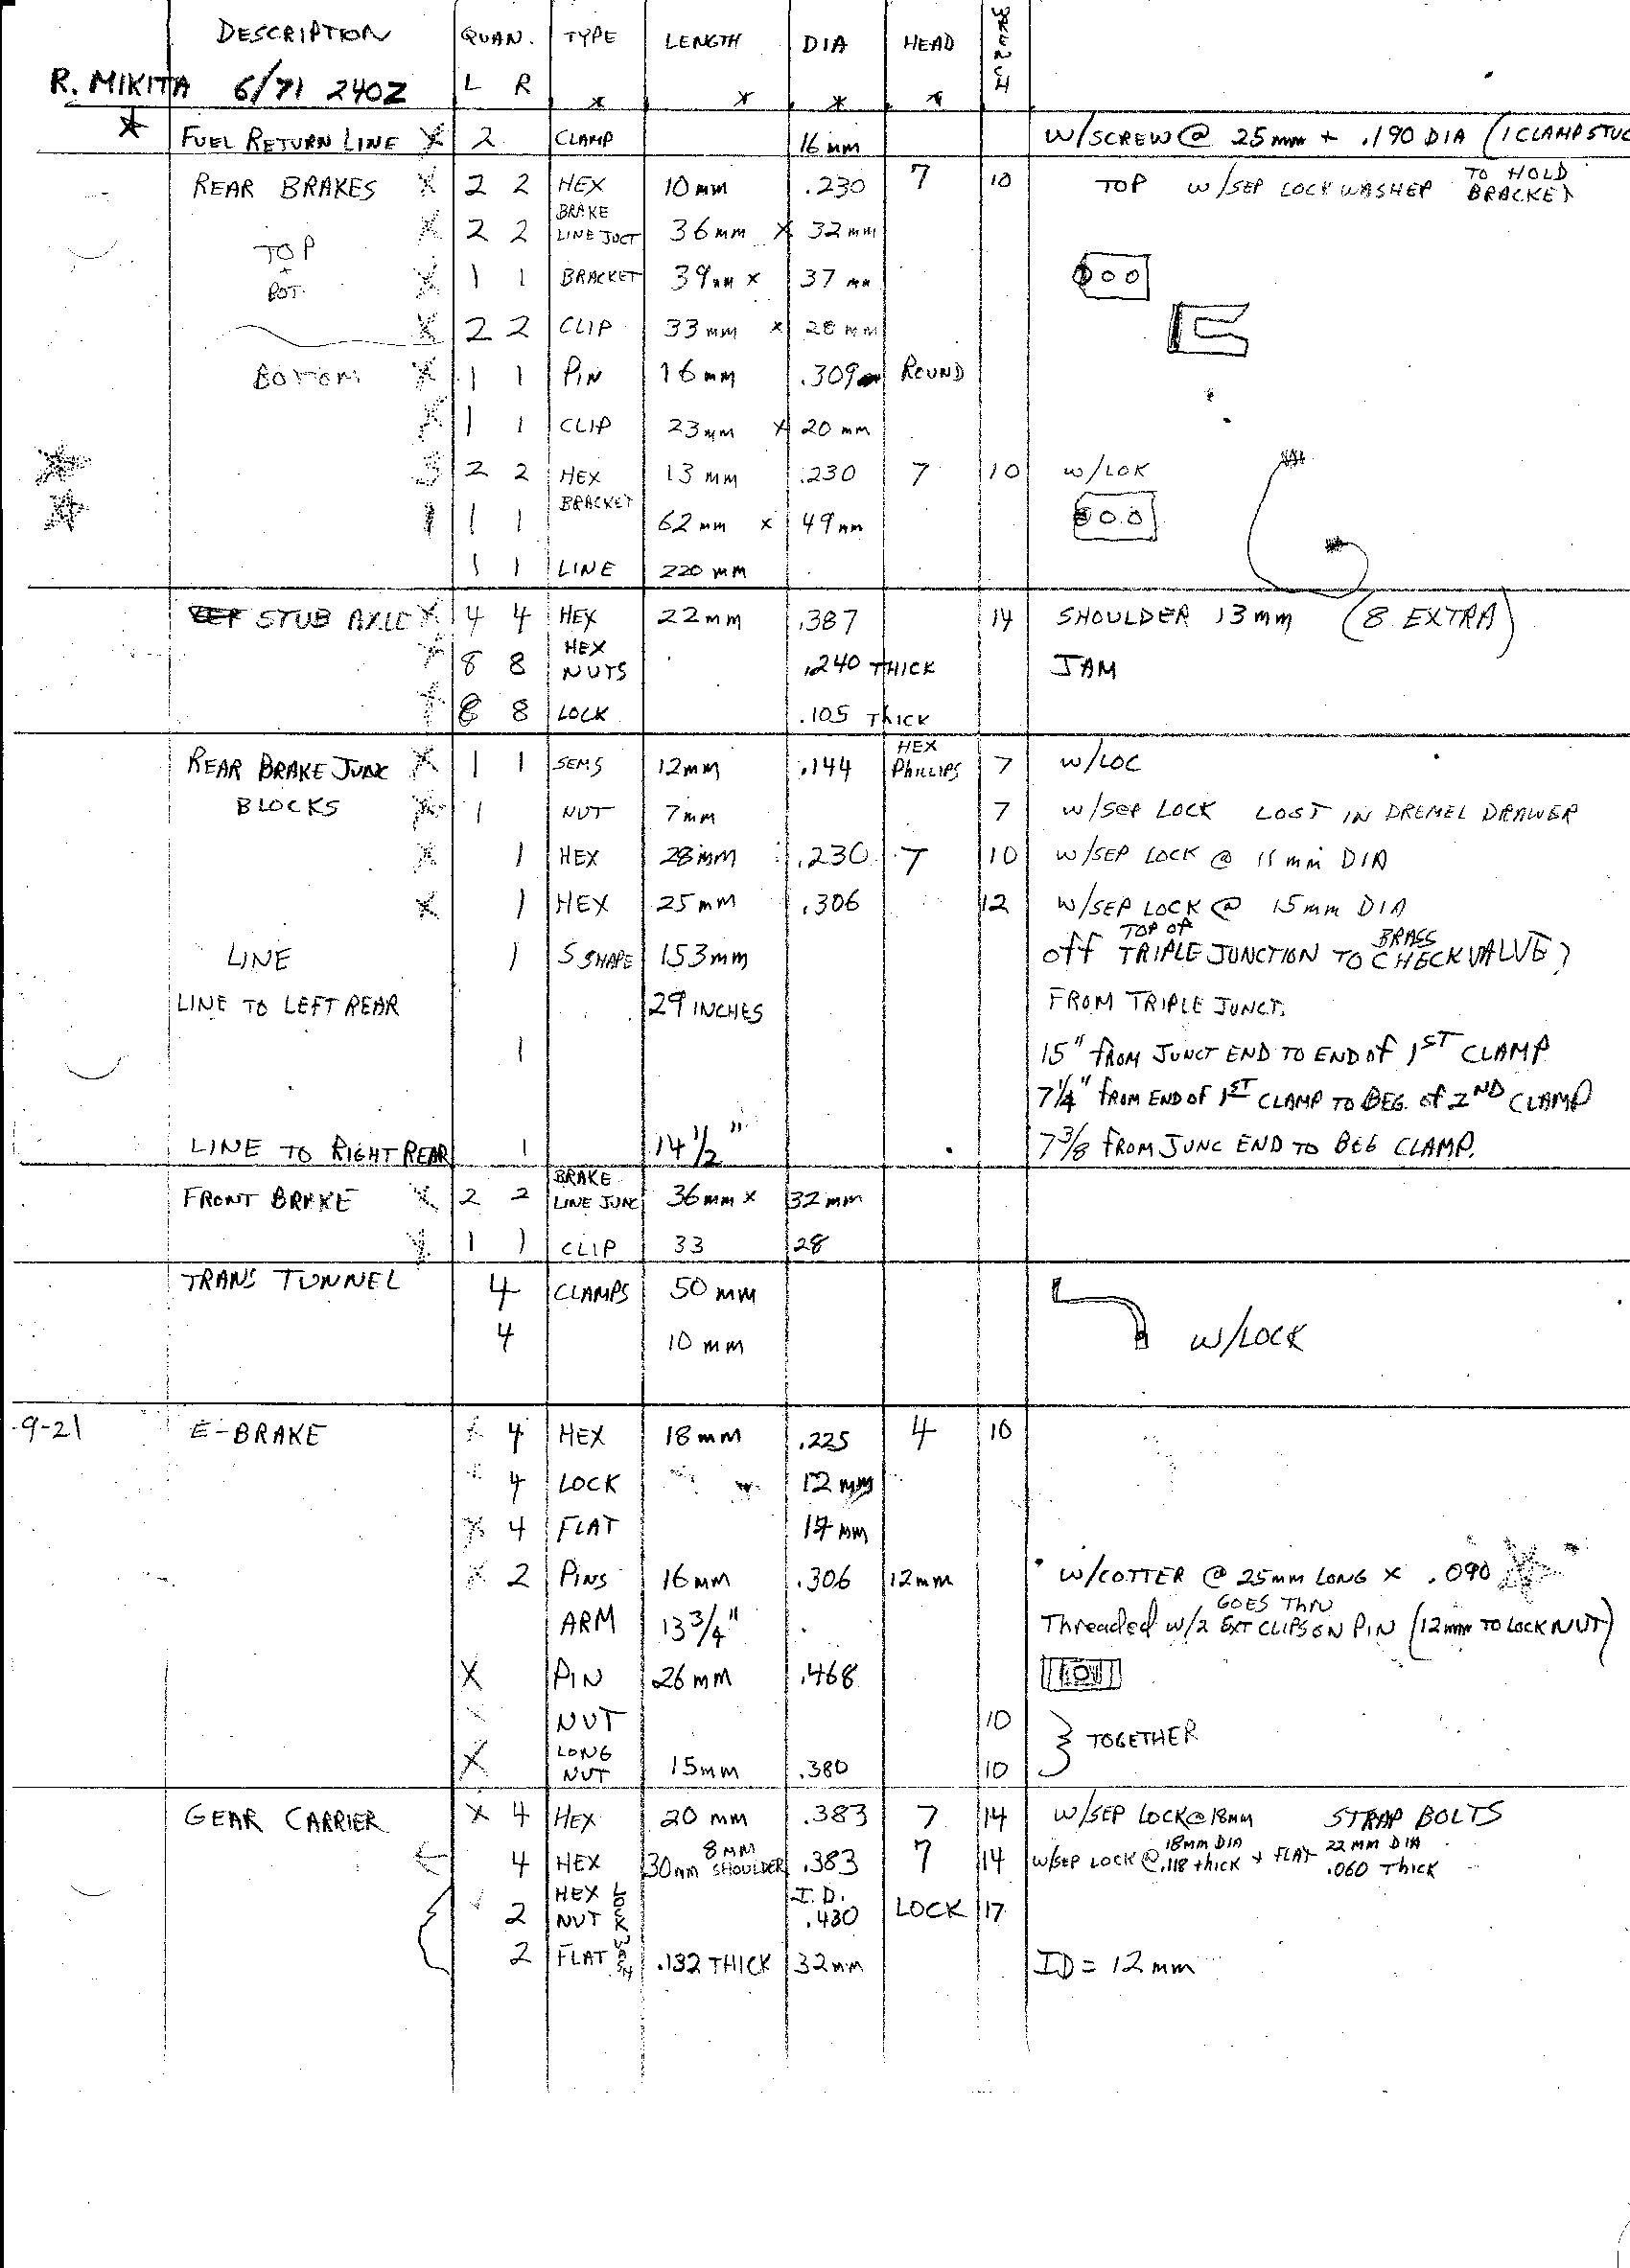 DESCRIPTION QUAN. TYPE LENGTH DIA HEAD WRENCH
R. MIKITA 6/71 240Z L R * * * *
* FUEL RETURN LINE X 2 CLAMP 16 mm W/SCREW @ 25mm + .190 DIA (1 CLAMP STUC
REAR BRAKES X 2 2 HEX 10mm .230 7 10 TOP W/SEP LOCK WASHER TO HOLD BRACKET
TOP + BOT. X 2 2 BRAKE LINE JUCT 36mm X 32mm
X 1 1 BRACKET 39mm X 37mm
X 2 2 CLIP 33mm X 28mm
BOTTOM X 1 1 PIN 16mm .309 ROUND
X 1 1 CLIP 23mm X 20mm
2 2 HEX 13mm .230 7 10 W/LOK
1 1 BRACKET 62mm X 49mm
1 1 LINE 220mm
STUB AXLE X 4 4 HEX 22mm .387 14 SHOULDER 13mm (8 EXTRA)
X 8 8 HEX NUTS .240 THICK JAM
X 8 8 LOCK .105 THICK
REAR BRAKE JUNC X 1 1 SEMS 12mm .144 HEX PHILLIPS 7 W/LOC
BLOCKS X 1 NUT 7mm 7 W/SEP LOCK LOST IN DREMEL DRAWER
X 1 HEX 28mm .230 7 10 W/SEP LOCK @ 11mm DIA
X 1 HEX 25mm .306 12 W/SEP LOCK @ 15mm DIA
LINE 1 S SHAPE 153mm Off TOP OF TRIPLE JUNCTION TO BRASS CHECKVALVE?
LINE TO LEFT REAR 29 INCHES FROM TRIPLE JUNCT.
1 15" FROM JUNCT END TO END OF 1ST CLAMP
7 1/4" FROM END OF 1ST CLAMP TO BEG. OF 2ND CLAMP
LINE TO RIGHT REAR 1 14 1/2" 7 3/8 FROM JUNC END TO BEG CLAMP.
FRONT BRAKE X 2 2 BRAKE LINE JUNC 36mm X 32mm
X 1 1 CLIP 33 28
TRANS TUNNEL 4 CLAMPS 50mm
4 10mm W/LOCK
9-21 E-BRAKE X 4 HEX 18mm .225 4 10
X 4 LOCK 12mm
X 4 FLAT 17mm
X 2 PINS 16mm .306 12mm W/COTTER @ 25mm LONG X .090
ARM 13 3/4" Threaded W/2 EXT CLIPS GOES THRU ON PIN (12mm TO LOCKNUT)
X PIN 26mm .468
NUT 10
} TOGETHER
X LONG NUT 15mm .380 10
GEAR CARRIER X 4 HEX 20mm .383 7 14 W/SEP LOCK @ 18mm STRAP BOLTS
4 HEX 30mm 8MM SHOULDER .383 7 14 W/SEP LOCK @ 18MM DIA .118 thick + FLAT 22MM DIA .060 THICK
2 HEX NUT LOCK I.D. .430 LOCK 17
2 FLAT WASH .132 THICK 32mm ID = 12mm